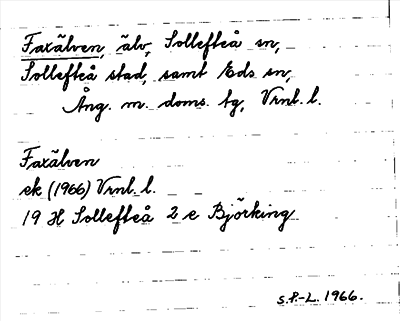 Faxälven, älv, Sollefteå sn,
Sollefteå stad, samt Eds sn,
Ång. m. doms. tg, Vrnl. l.
Faxälven
ek (1966) Vrnl. l.
19 H Sollefteå 2 e Björking
S.P.-L. 1966.